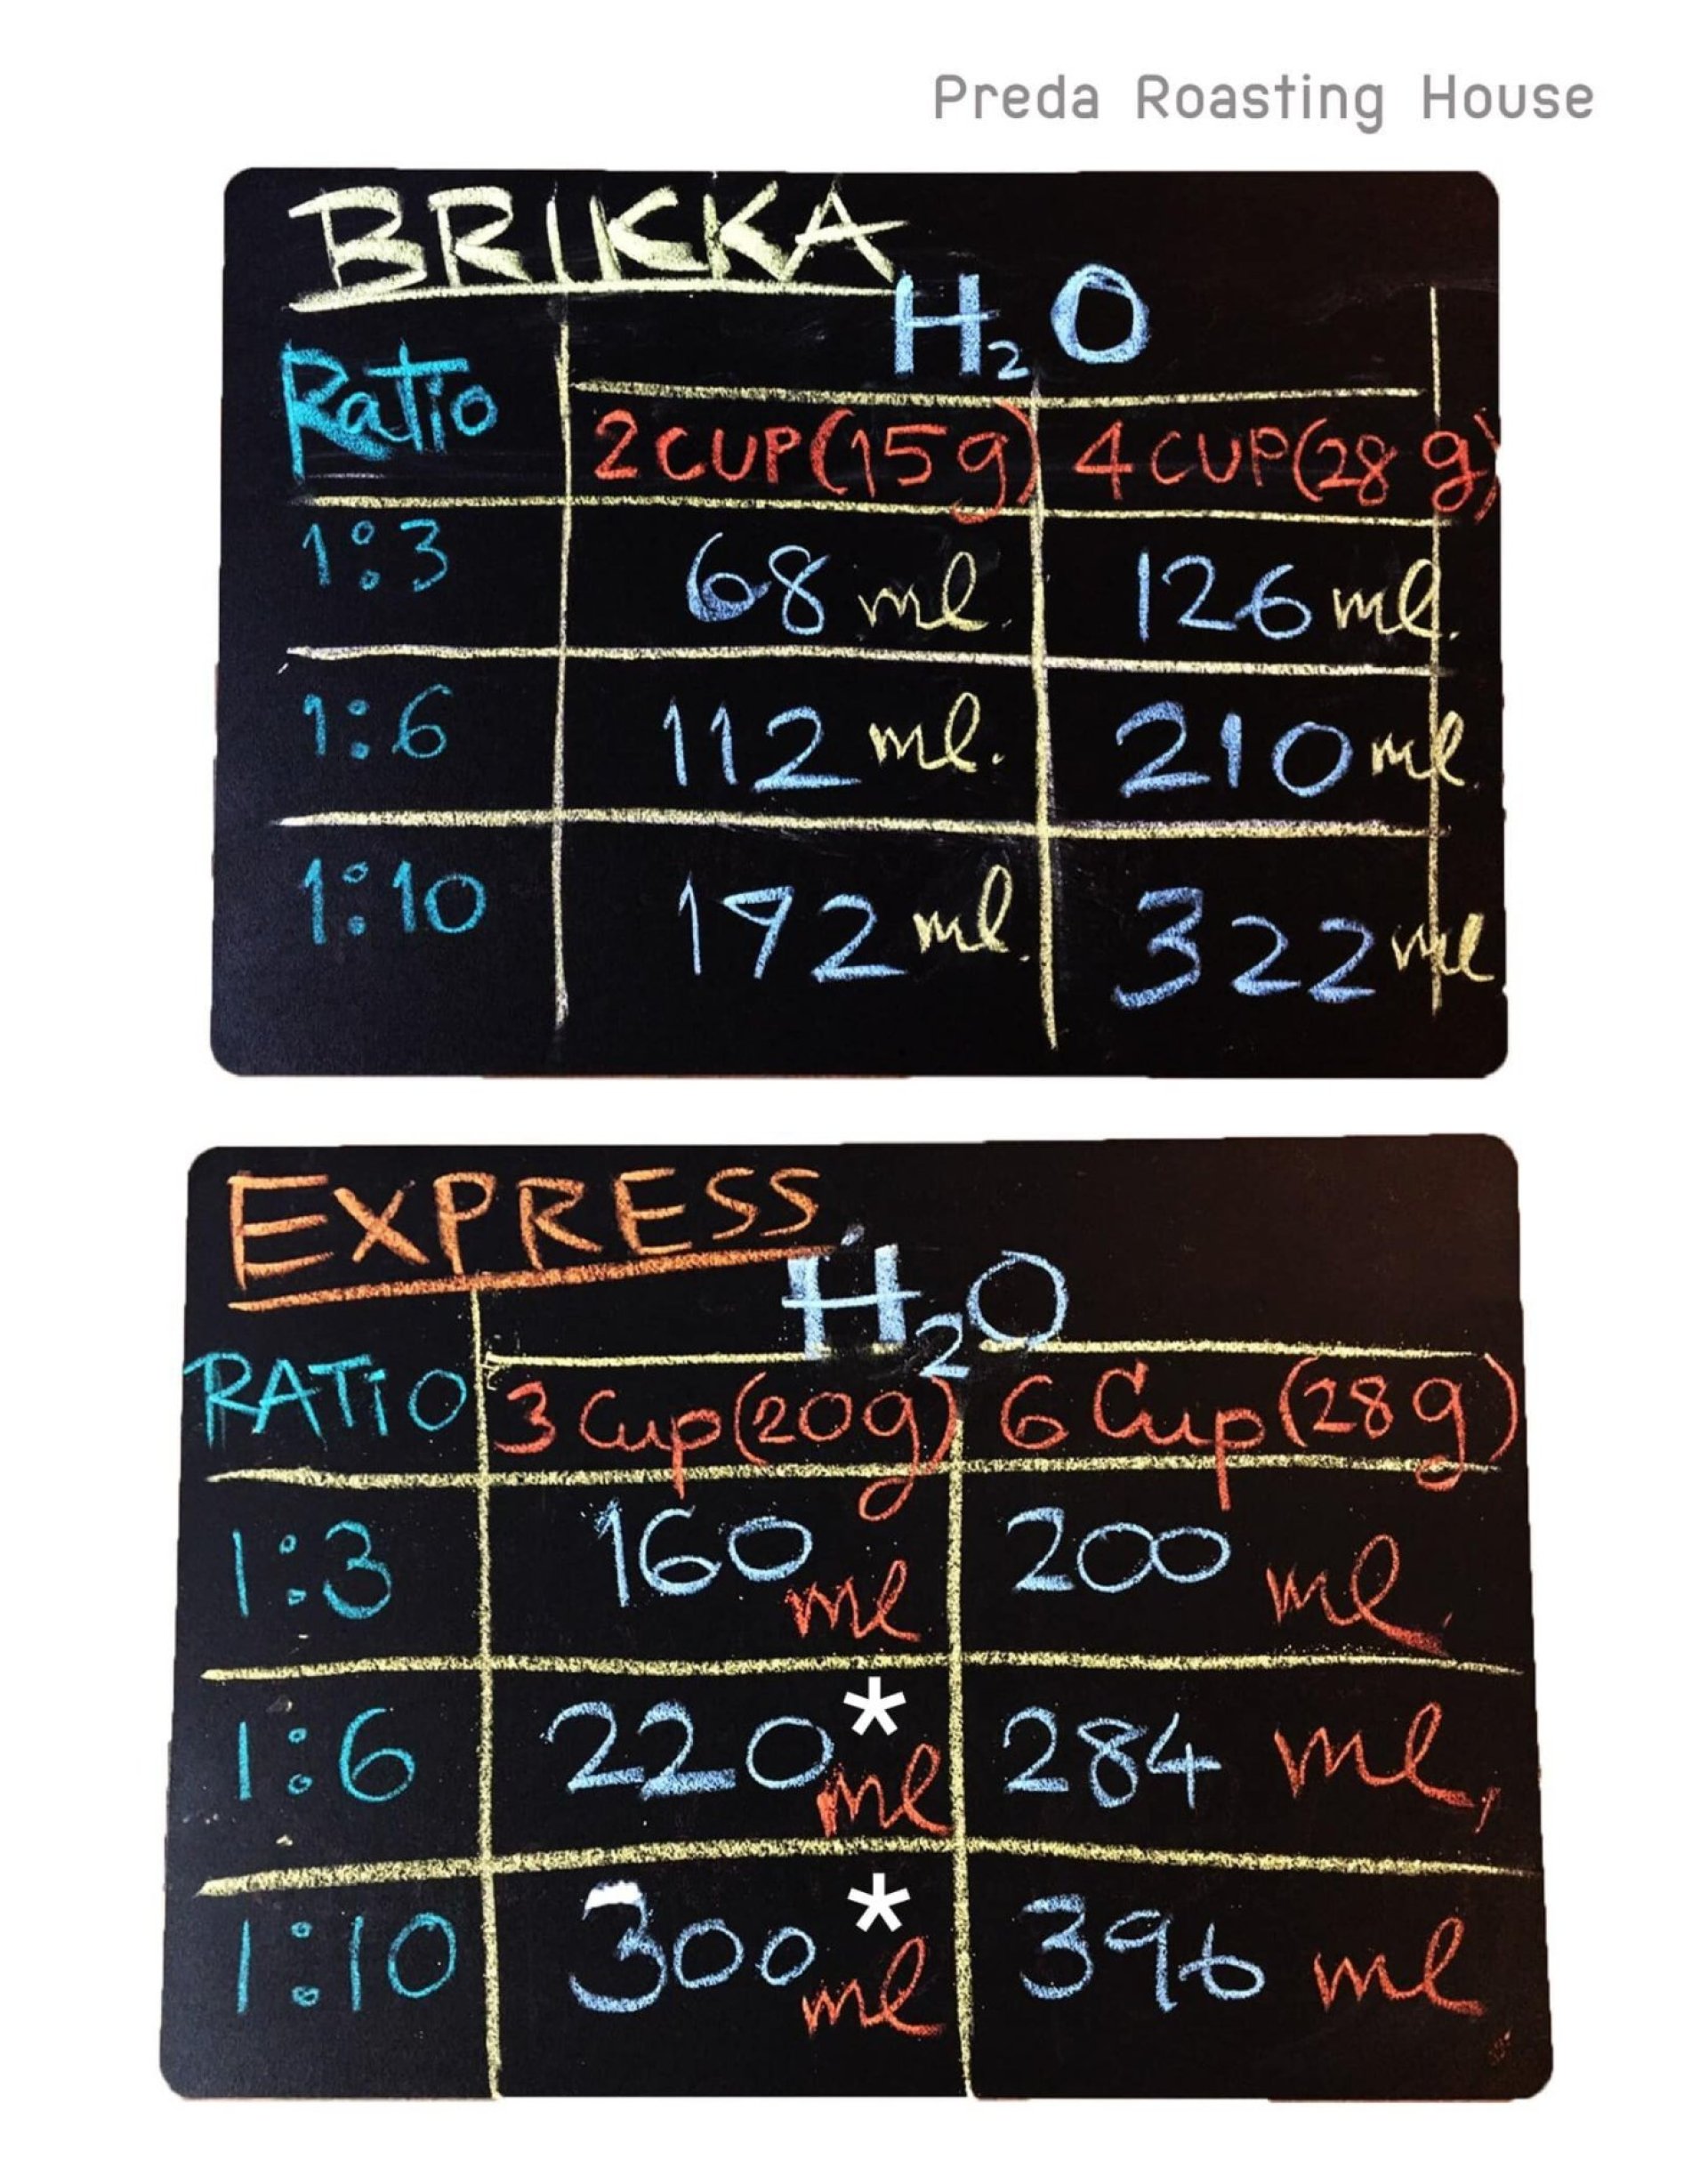 Preda Roasting House
BRIKKA
H₂O
Ratio 2 CUP (15 g) 4 CUP (28 g)
1:3 68 ml. 126 ml.
1:6 112 ml. 210 ml
1:10 192 ml. 322 ml
EXPRESS
H₂O
RATiO 3 Cup (20g) 6 Cup (28g)
1:3 160 ml 200 ml.
1:6 220* ml 284 ml,
1:10 300* ml 396 ml